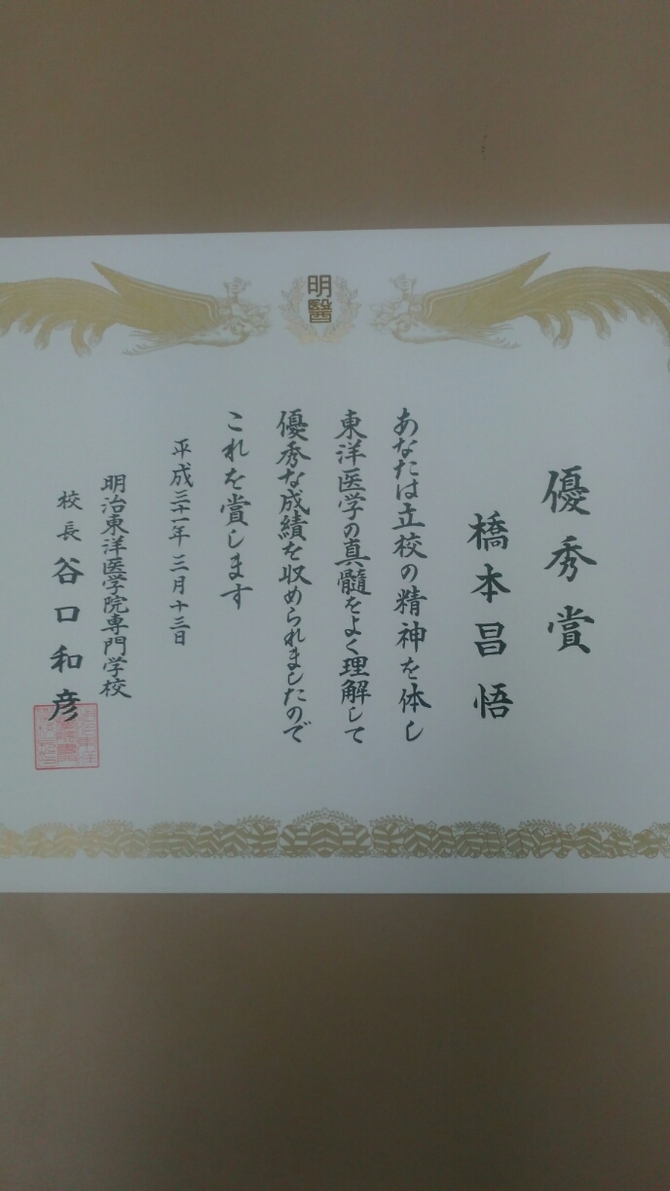 明醫
優秀賞
橋本昌悟
あなたは立校の精神を体し
東洋医学の真髄をよく理解して
優秀な成績を収められましたので
これを賞します
平成三十一年三月十三日
明治東洋医学院専門学校
校長 谷口和彦